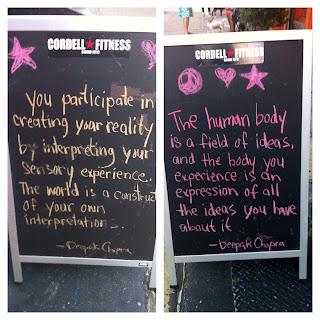 CORDELL★FITNESS
you participate in
creating your reality
by interpreting your
sensory experience.
The world is a construct
of your own
interpretation -.
- Deepak Chopra
CORDELL★FITNESS
The human body
is a field of ideas,
and the body you
experience is an
expression of all
the ideas you have
about it
- Deepak Chopra